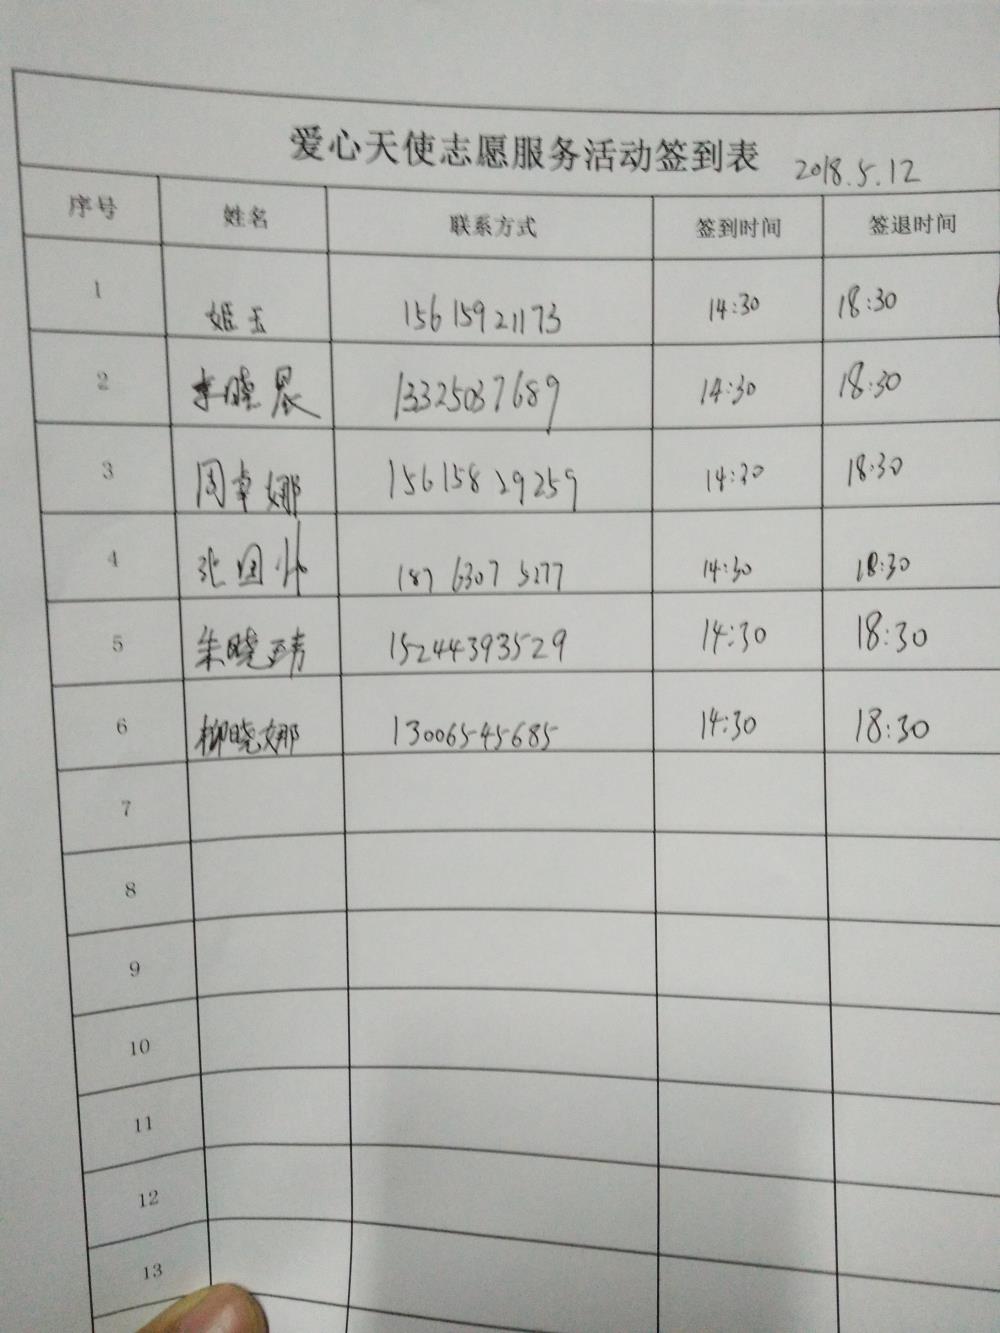 爱心天使志愿服务活动签到表 2018.5.12
序号 姓名 联系方式 签到时间 签退时间
1 姬玉 15615921173 14:30 18:30
2 李晓晨 13325037689 14:30 18:30
3 周卓娜 15615829259 14:30 18:30
4 张国 18763075277 14:30 18:30
5 朱晓 15244393529 14:30 18:30
6 柳晓娜 13006545685 14:30 18:30
7
8
9
10
11
12
13